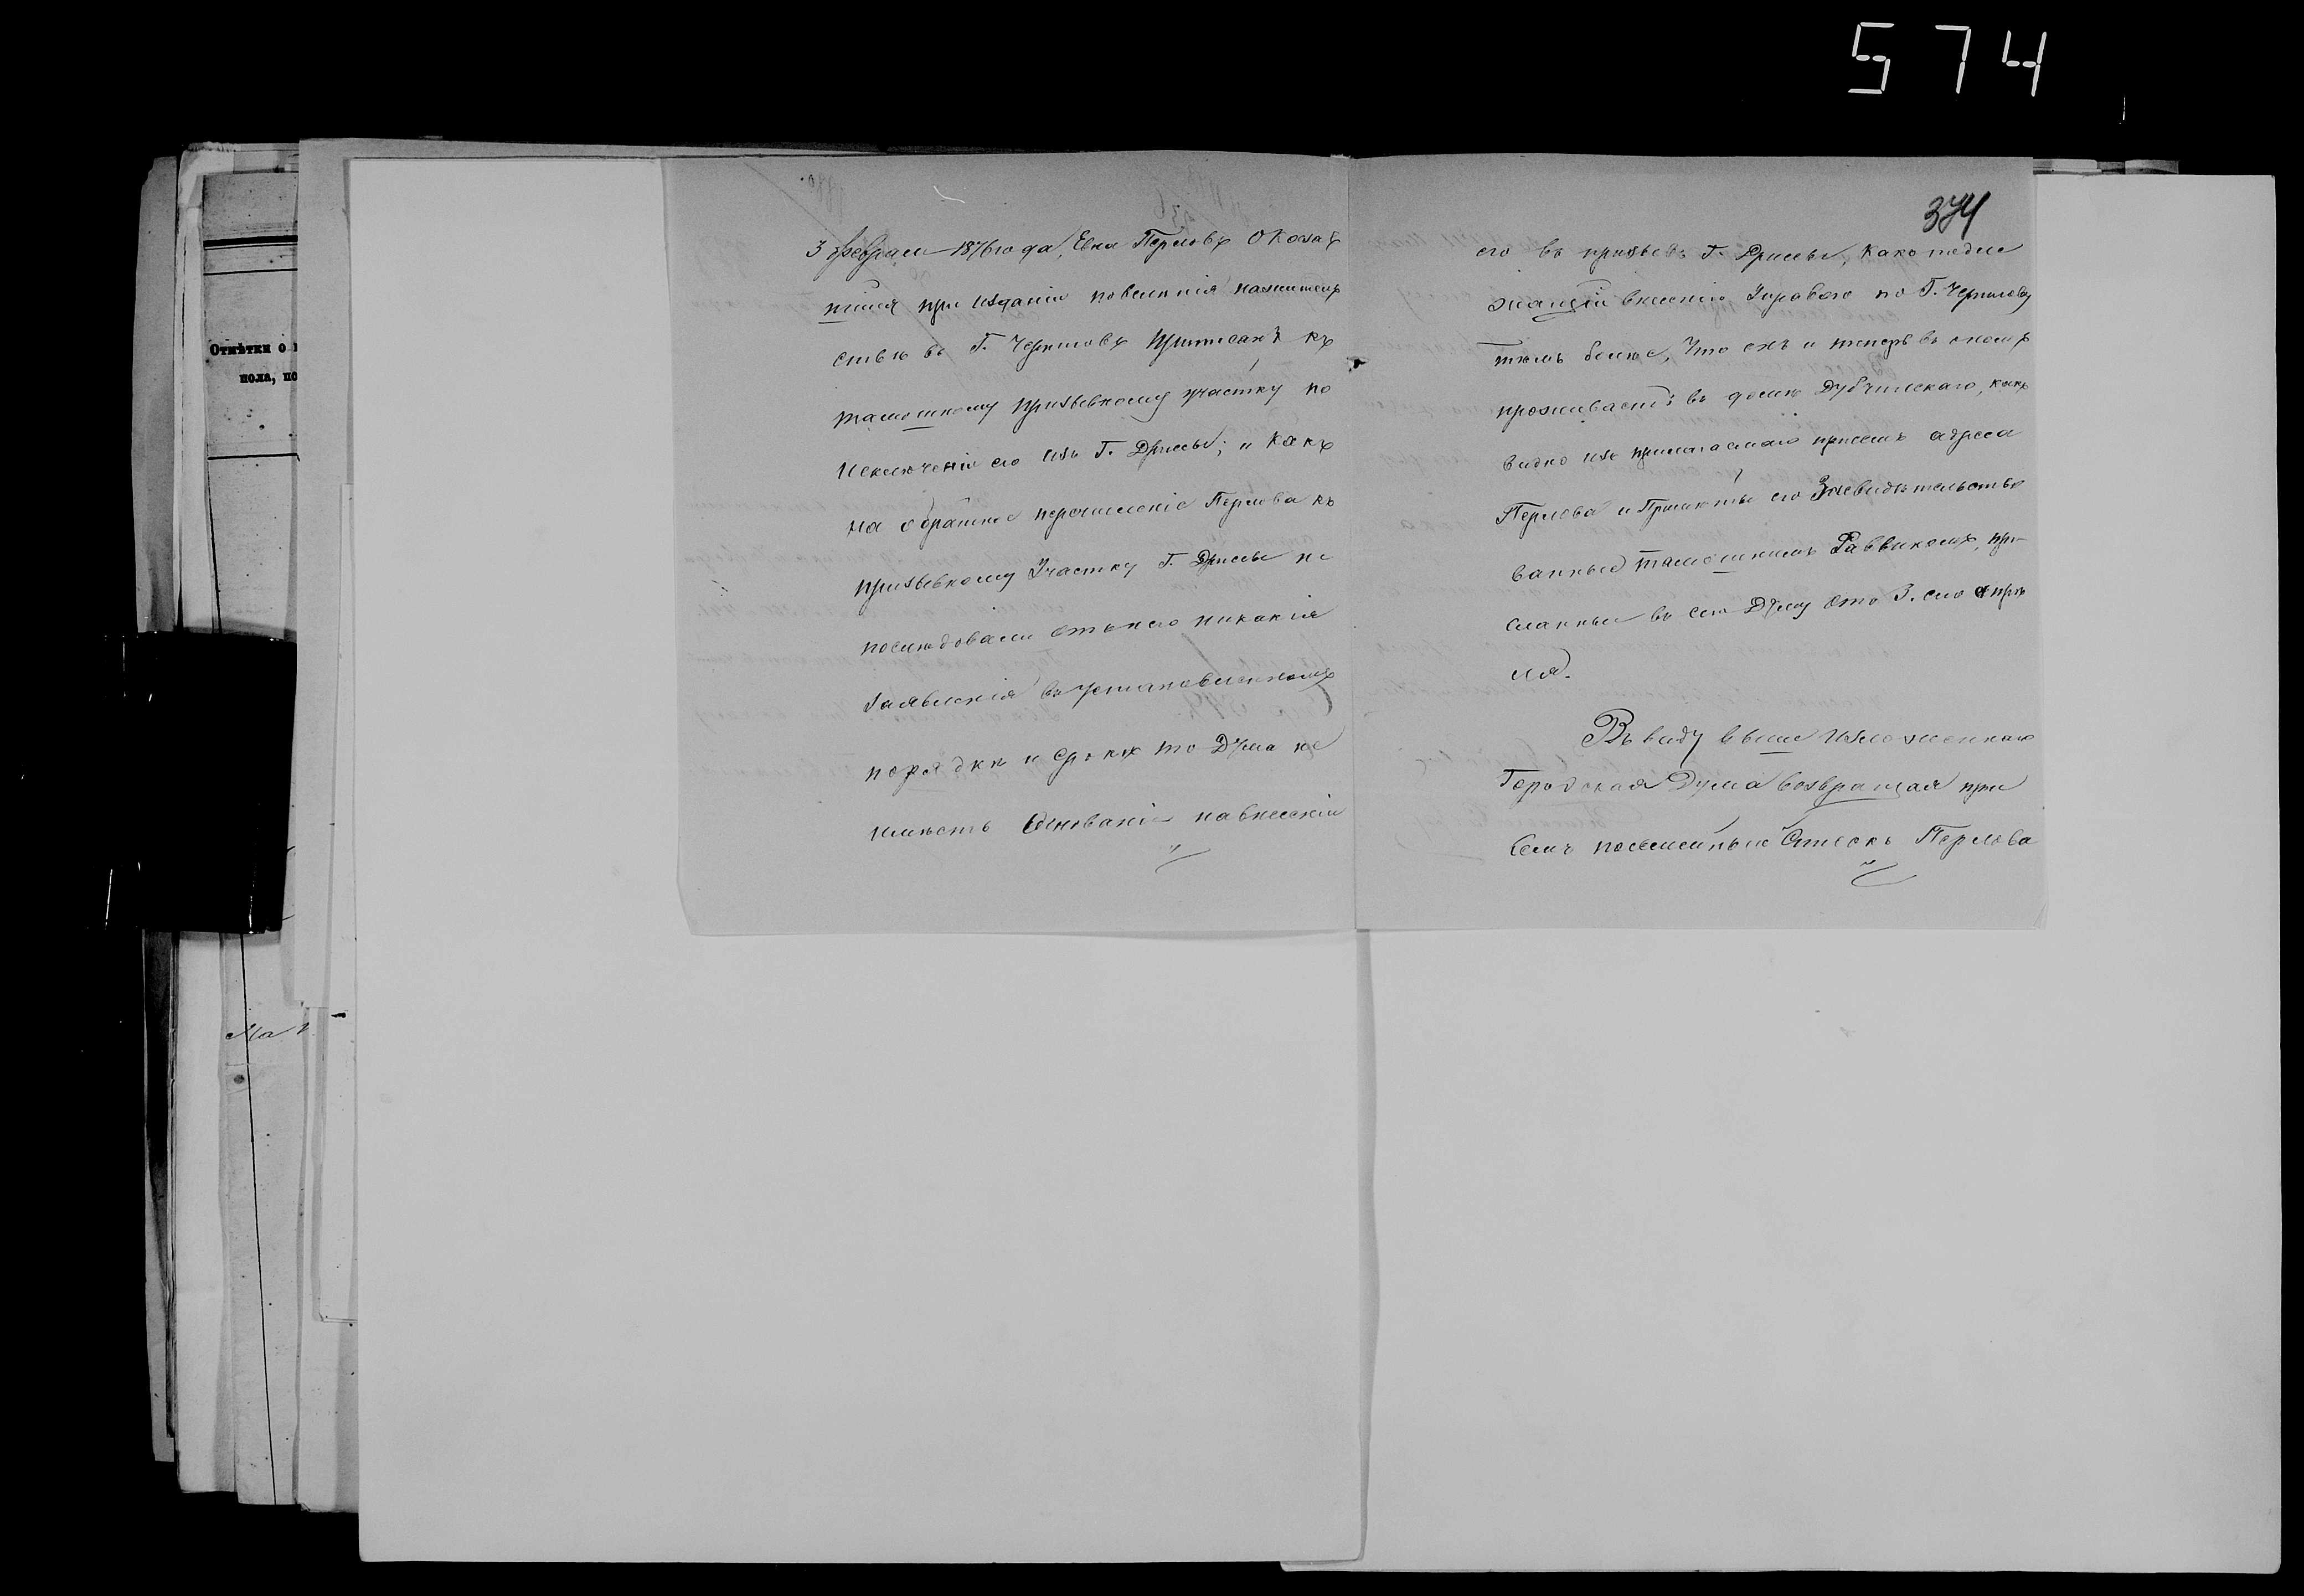 574
Отмѣтки о
пола, по
Ма
3 февраля 1876 года, Евна Перловъ оказав
шійся при изданіи повелѣнія на житель
ствѣ въ Г. Черниговѣ приписанъ къ
тамошному призывному участку по
исключеніи его изъ Г. Дриссы; и какъ
на обратное перечисленіе Перлова къ
призывному Участку Г. Дриссы не
послѣдовали отъ него никакія
заявленія въ установленномъ
порядкѣ и срокѣ то Дума не
имѣетъ основанія на внесеніи
374
его въ призывъ Г. Дриссы, како подле
жащій внесенію по Г. Чернигову
тѣмъ болѣе, что онъ и теперь въ ономъ
проживаетъ въ домѣ Дубчинскаго, какъ
видно изъ прилагаемаго при семъ адреса
Перлова и его Засвидѣтельство
ванные тамошнимъ Раввиномъ, при
сланные въ сію Думу ото 3. сего апрѣ
ля.
Въ виду выше изложеннаго
Городская Дума возвращая при
семъ посемейный списокъ Перлова